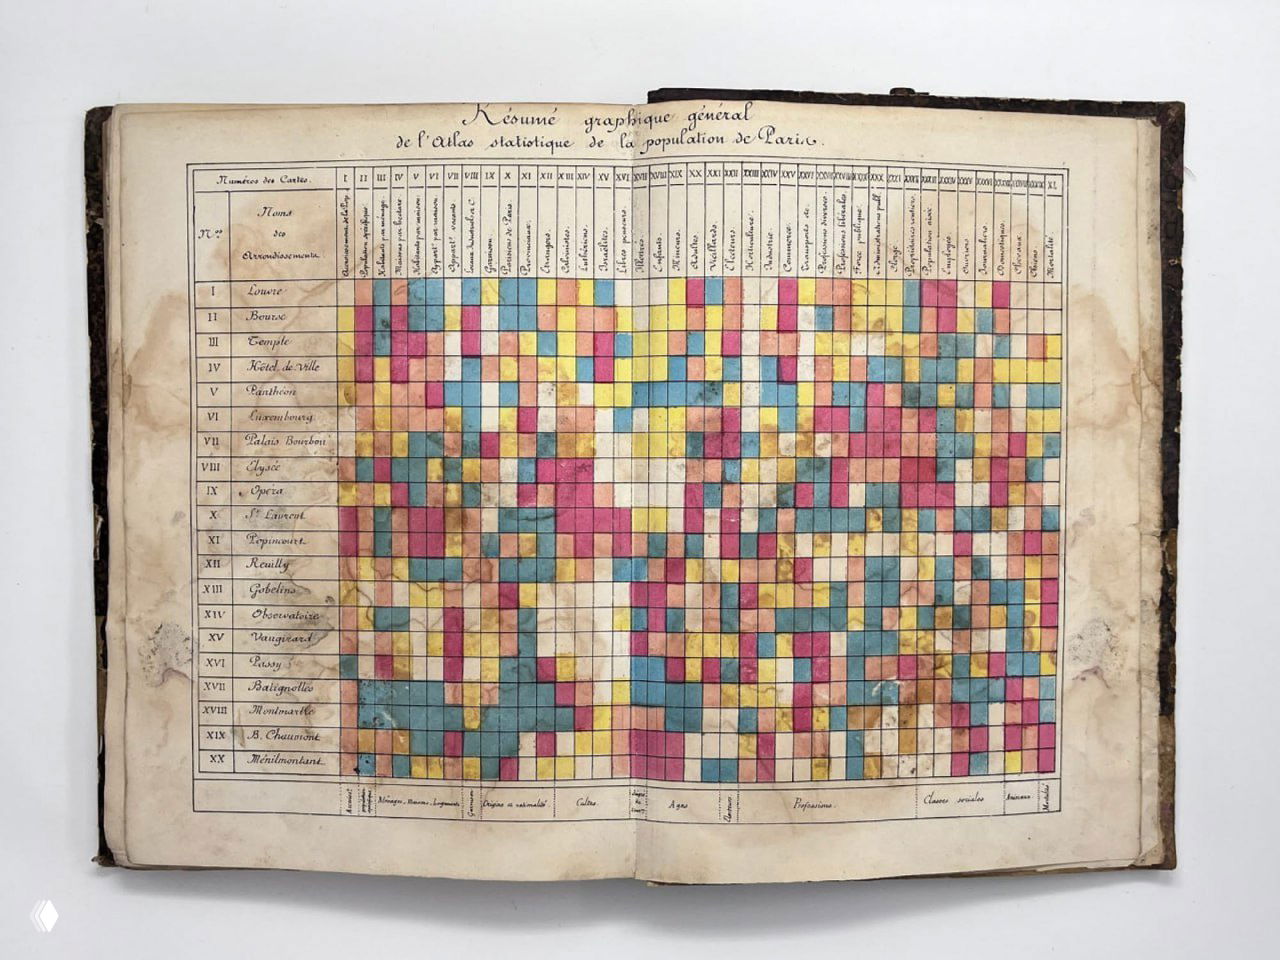 Résumé graphique général
de l'Atlas statistique de la population de Paris.
Numéros des Cartes. I II III IV V VI VII VIII IX X XI XII XIII XIV XV XVI XVII XVIII XIX XX XXI XXII XXIII XXIV XXV XXVI XXVII XXVIII XXIX XXX XXXI XXXII XXXIII XXXIV XXXV XXXVI XXXVII XXXVIII XXXIX XL
Nos
Noms
des
Arrondissements
Population spécifique
Habitants par ménage
Maisons par hectare
Habitants par maison
Appartt par maison
Appartt vacants
Garnison
Parisiens de Paris
Provinciaux
Etrangers
Calvinistes
Luthériens
Israélites
Libres penseurs
Illettrés
Enfants
Mineurs
Adultes
Vieillards
Electeurs
Horticulture
Industrie
Commerce
Transports
Professions diverses
Professions libérales
Force publique
Administrations publ.
Clergé
Propriétaires rentiers
Population aisée
Employés
Ouvriers
Journaliers
Domestiques
Chevaux
Chiens
Mortalité
I Louvre
II Bourse
III Temple
IV Hôtel de Ville
V Panthéon
VI Luxembourg
VII Palais Bourbon
VIII Elysée
IX Opéra
X St Laurent
XI Popincourt
XII Reuilly
XIII Gobelins
XIV Observatoire
XV Vaugirard
XVI Passy
XVII Batignolles
XVIII Montmartre
XIX B. Chaumont
XX Ménilmontant
Ménages, Maisons, Logements
Garnison
Origine et nationalité
Cultes.
Ages
Electeurs
Professions.
Classes sociales
Animaux
Mortalité